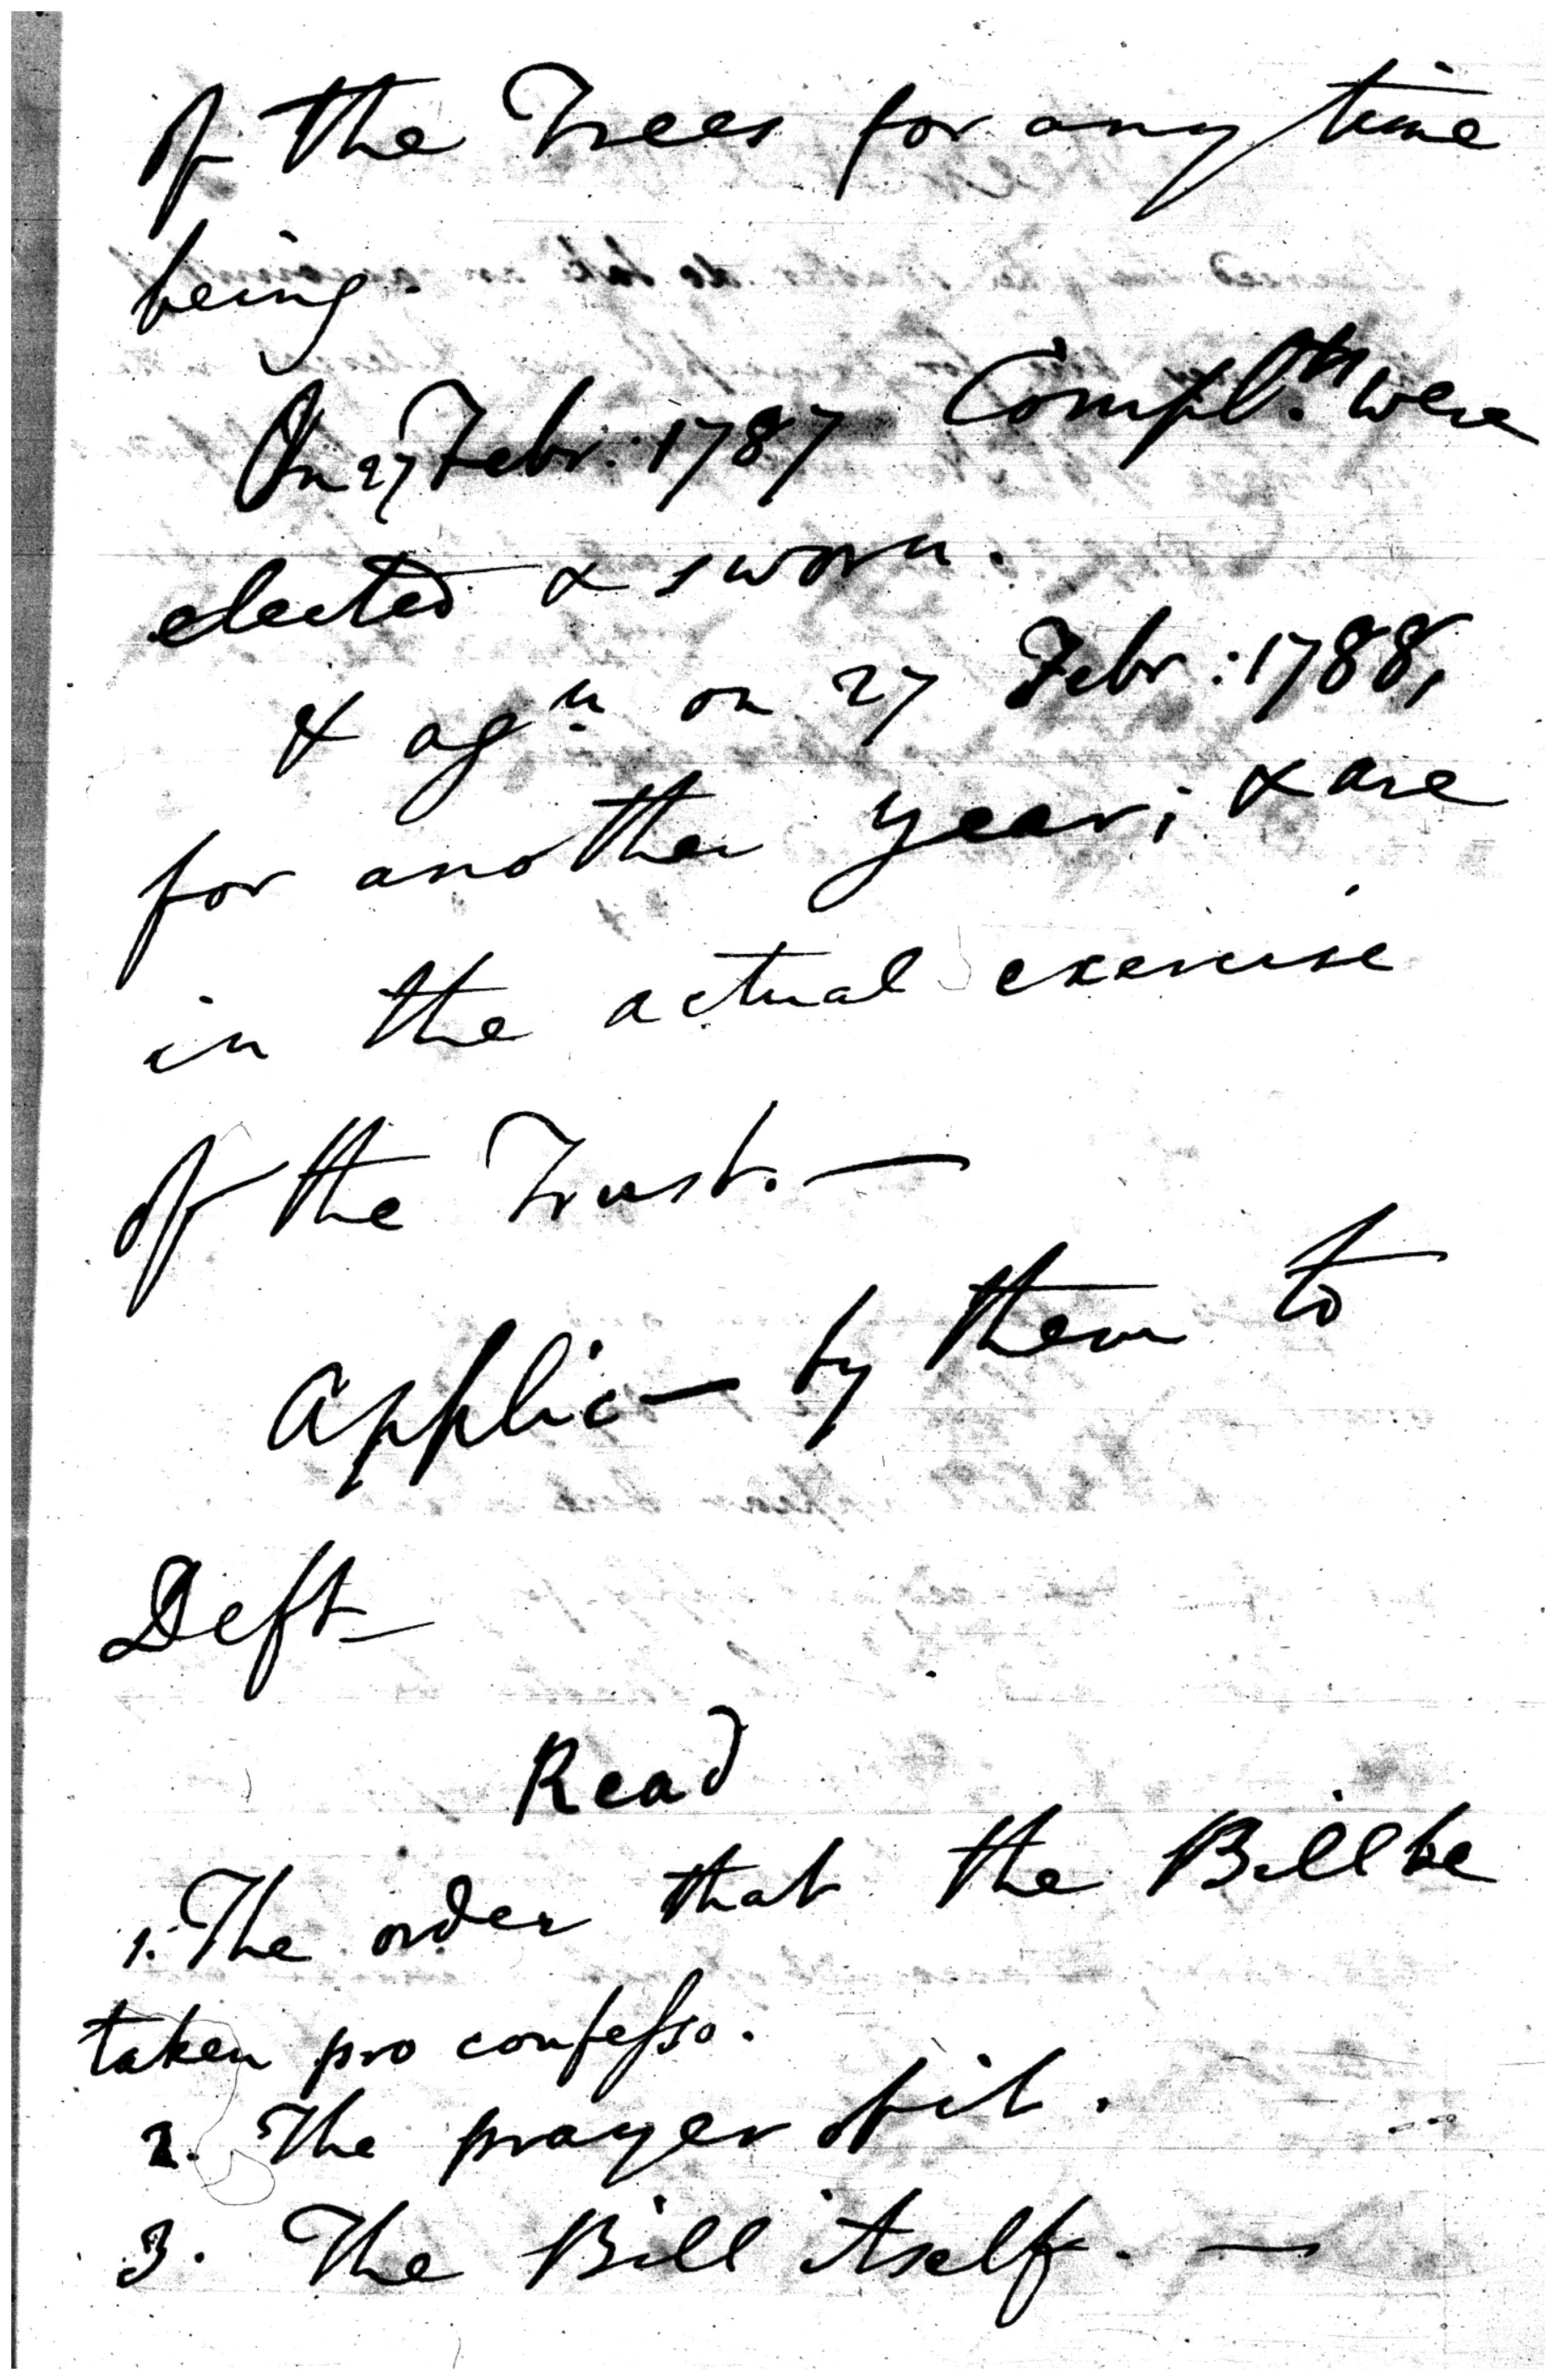 of the Trees for any time
being.
On 27 Febr: 1787 Compl.ts were
elected & sworn.
& agn on 27 Febr: 1788,
for another year; & are
in the actual exercise
of the Trust. —
Applic— by them to
Deft—
Read
1. The order that the Bill be
taken pro confesso.
2. The prayer of it.
3. The Bill itself. —